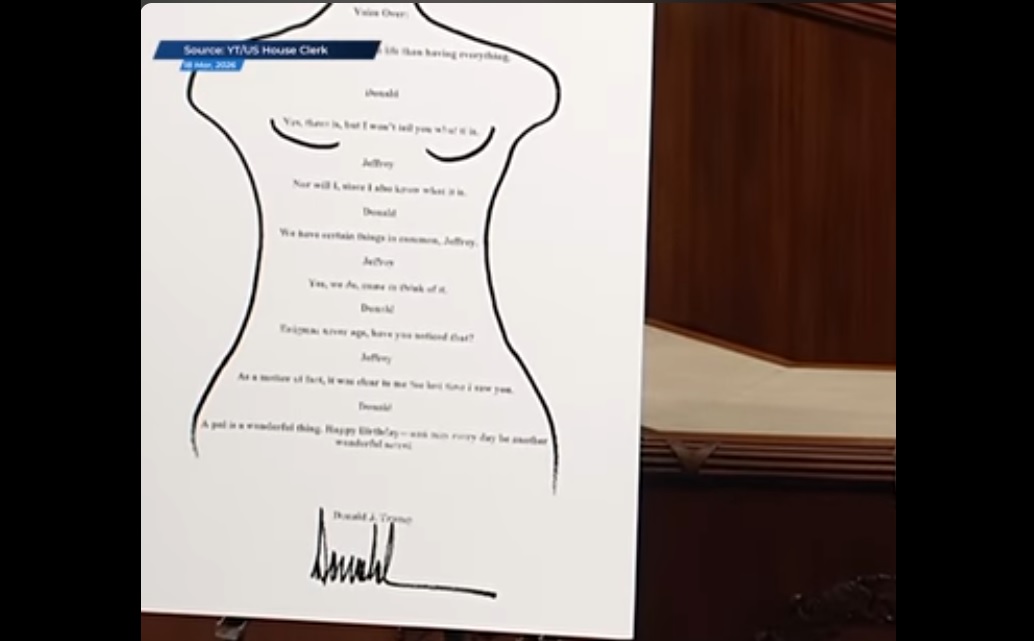 Voice Over:
Source: YT/US House Clerk
life than having everything.
18 Mar, 2026
Donald
Yes, there is, but I won't tell you what it is.
Jeffrey
Nor will I, since I also know what it is.
Donald
We have certain things in common, Jeffrey.
Jeffrey
Yes, we do, come to think of it.
Donald
Enigmas never age, have you noticed that?
Jeffrey
As a matter of fact, it was clear to me the last time I saw you.
Donald
A pal is a wonderful thing. Happy Birthday — and may every day be another
wonderful secret.
Donald J. Trump
Donald